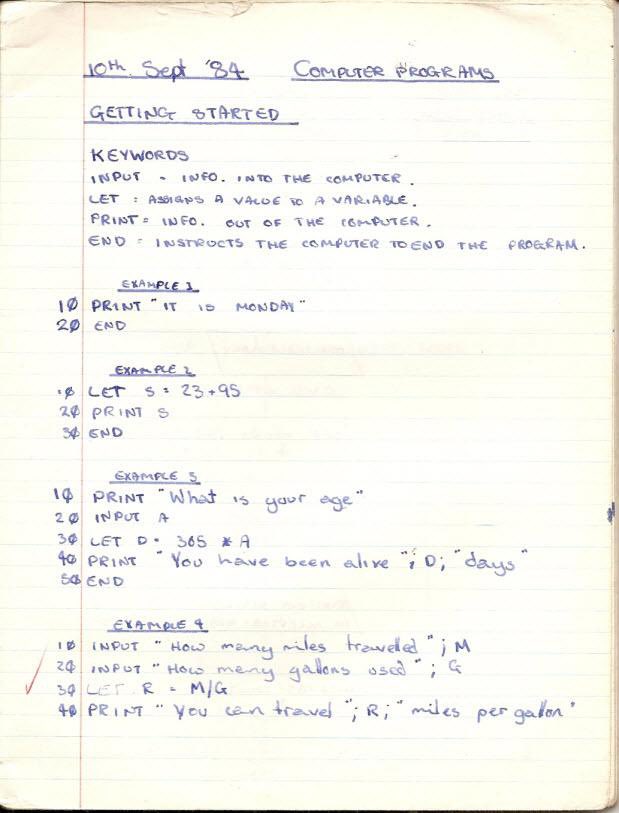 10th Sept '84 COMPUTER PROGRAMS
GETTING STARTED
KEYWORDS
INPUT = INFO. INTO THE COMPUTER.
LET : ASSIGNS A VALUE TO A VARIABLE.
PRINT = INFO. OUT OF THE COMPUTER.
END = INSTRUCTS THE COMPUTER TO END THE PROGRAM.
EXAMPLE 1
10 PRINT "IT IS MONDAY"
20 END
EXAMPLE 2
10 LET S = 23+95
20 PRINT S
30 END
EXAMPLE 3
10 PRINT "What is your age"
20 INPUT A
30 LET D = 365 * A
40 PRINT "You have been alive "; D; "days"
50 END
EXAMPLE 4
10 INPUT "How many miles travelled "; M
20 INPUT "How many gallons used "; G
30 LET R = M/G
40 PRINT "You can travel "; R; "miles per gallon"